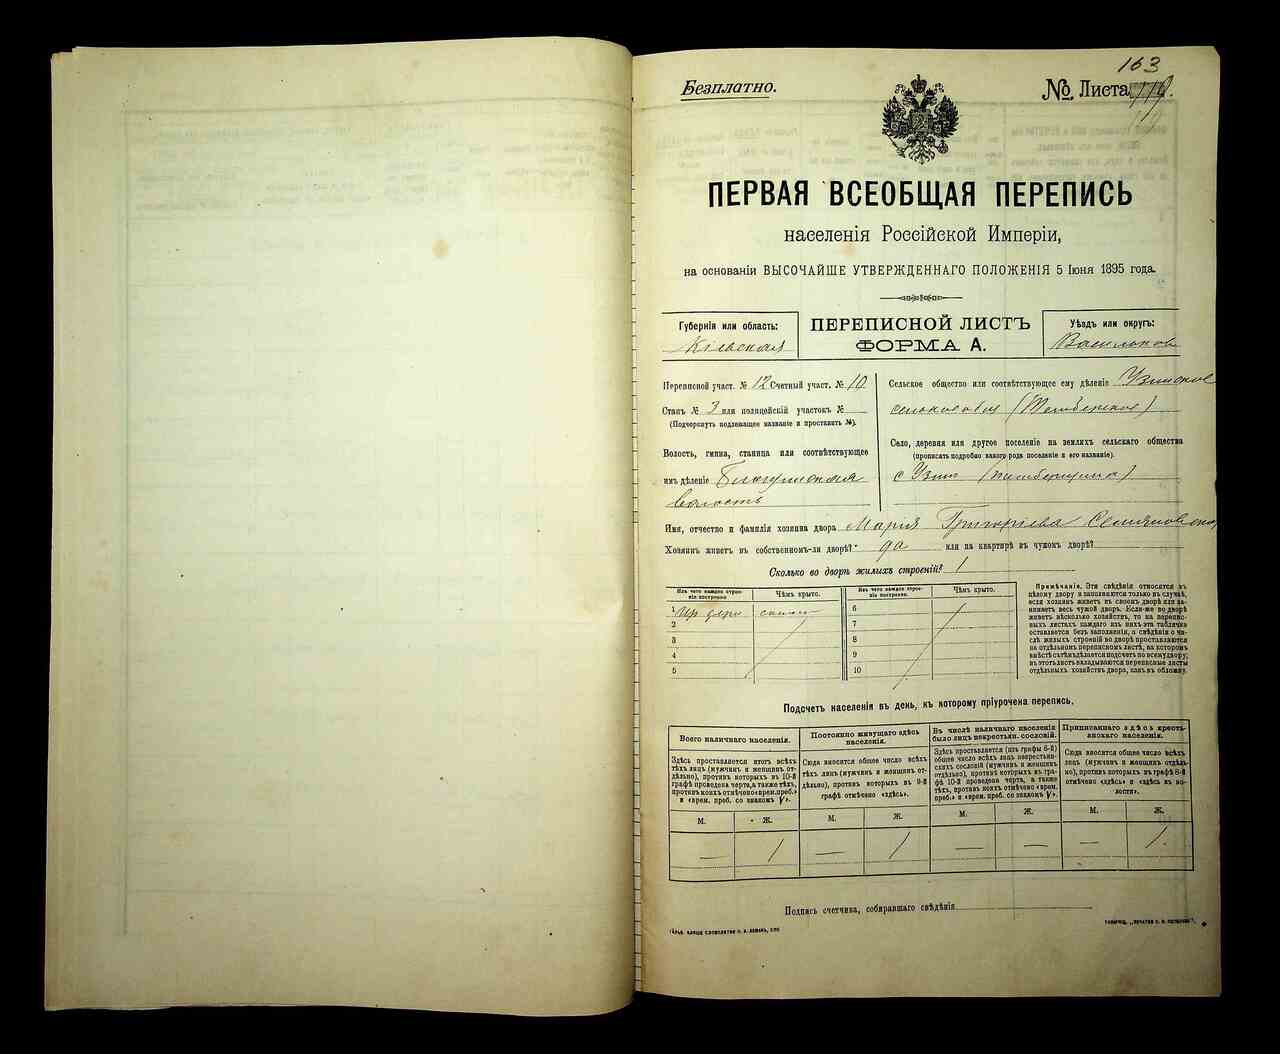 163
Безплатно.
№ Листа 119.
ПЕРВАЯ ВСЕОБЩАЯ ПЕРЕПИСЬ
населенія Россійской Имперіи,
на основаніи ВЫСОЧАЙШЕ УТВЕРЖДЕННАГО ПОЛОЖЕНІЯ 5 Іюня 1895 года.
Губернія или область:
Кіевская
ПЕРЕПИСНОЙ ЛИСТЪ
ФОРМА А.
Уѣздъ или округъ:
Васильков
Переписной участ. № 12 Счетный участ. № 10
Станъ № 3 или полицейскій участокъ №
(Подчеркнуть подлежащее названіе и проставить №).
Волость, гмина, станица или соотвѣтствующее
имъ дѣленіе
волость
Сельское общество или соотвѣтствующее ему дѣленіе Узинское
Село, деревня или другое поселеніе на земляхъ сельскаго общества
(прописать подробно какого рода поселеніе и его названіе).
с Узин
Имя, отчество и фамилія хозяина двора Марія Григоріева
Хозяинъ живетъ въ собственномъ-ли дворѣ? да или на квартирѣ въ чужомъ дворѣ?
Сколько во дворѣ жилыхъ строеній? 1
Изъ чего каждое строеніе построено. Чѣмъ крыто. Изъ чего каждое строеніе построено. Чѣмъ крыто.
1 6
2 7
3 8
4 9
5 10
Примѣчаніе. Эти свѣдѣнія относятся къ
цѣлому двору и заполняются только въ случаѣ,
если хозяинъ живетъ въ своемъ дворѣ или занимаетъ
весь чужой дворъ. Если-же во дворѣ
живетъ нѣсколько хозяйствъ, то на переписныхъ
листахъ каждаго изъ нихъ эта табличка
оставляется безъ заполненія, а свѣдѣнія о числѣ
жилыхъ строеній во дворѣ проставляются
на отдѣльномъ переписномъ листѣ, на которомъ
вмѣстѣ съ тѣмъ дѣлается подсчетъ по всему двору;
въ этотъ листъ вкладываются переписные листы
отдѣльныхъ хозяйствъ двора, какъ въ обложку.
Подсчетъ населенія въ день, къ которому пріурочена перепись.
Всего наличнаго населенія.
Здѣсь проставляется итогъ всѣхъ
тѣхъ лицъ (мужчинъ и женщинъ отдѣльно),
противъ которыхъ въ 10-й
графѣ проведена черта, а также тѣхъ,
противъ коихъ отмѣчено «врем. преб.»
и «врем. преб. со знакомъ V».
Постоянно живущаго здѣсь
населенія.
Сюда вносится общее число всѣхъ
тѣхъ лицъ (мужчинъ и женщинъ отдѣльно),
противъ которыхъ въ 9-й
графѣ отмѣчено «здѣсь».
Въ числѣ наличнаго населенія
было лицъ некрестьян. сословій.
Здѣсь проставляется (изъ графы 6-й)
общее число всѣхъ лицъ некрестьянскихъ
сословій (мужчинъ и женщинъ
отдѣльно), противъ которыхъ въ графѣ
10-й проведена черта, а также
тѣхъ, противъ коихъ отмѣчено «врем.
преб.» и «врем. преб. со знакомъ V».
Приписаннаго здѣсь крестьянскаго
населенія.
Сюда вносится общее число всѣхъ
лицъ (мужчинъ и женщинъ отдѣльно),
противъ которыхъ въ графѣ 8-й
отмѣчено «здѣсь» и «здѣсь въ волости».
М. Ж. М. Ж. М. Ж. М. Ж.
— 1 — 1 — — — 1.
Подпись счетчика, собиравшаго свѣдѣнія